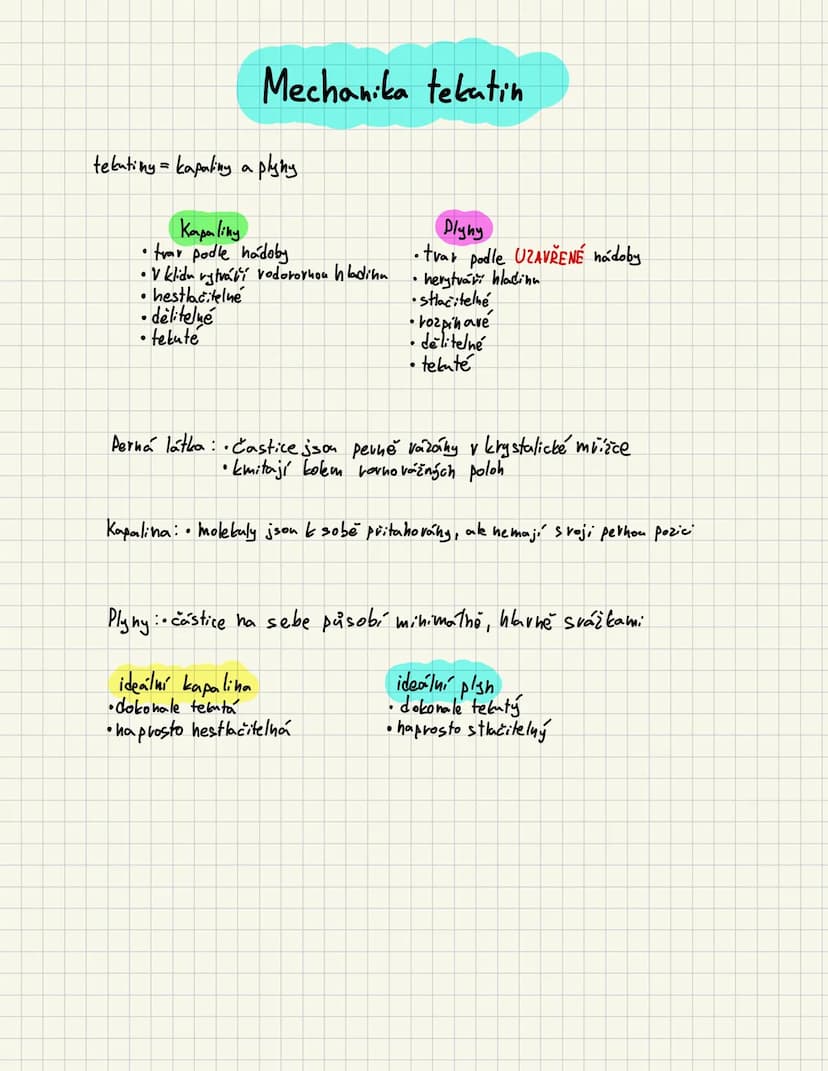 Mechanika tekutin
tekutiny = kapaliny a plyny
Kapaliny
• tvar podle nádoby
• v klidu vytváří vodorovnou hladinu
• nestlačitelné
• dělitelné
• tekuté
Plyny
• tvar podle UZAVŘENÉ nádoby
• nevytváří hladinu
• stlačitelné
• rozpínavé
• dělitelné
• tekuté
Pevná látka: • částice jsou pevně vázány v krystalické mřížce
• kmitají kolem rovnovážných poloh
Kapalina: • molekuly jsou k sobě přitahovány, ale nemají svoji pevnou pozici
Plyny: • částice na sebe působí minimálně, hlavně srážkami
ideální kapalina
• dokonale tekutá
• naprosto nestlačitelná
ideální plyn
• dokonale tekutý
• naprosto stlačitelný